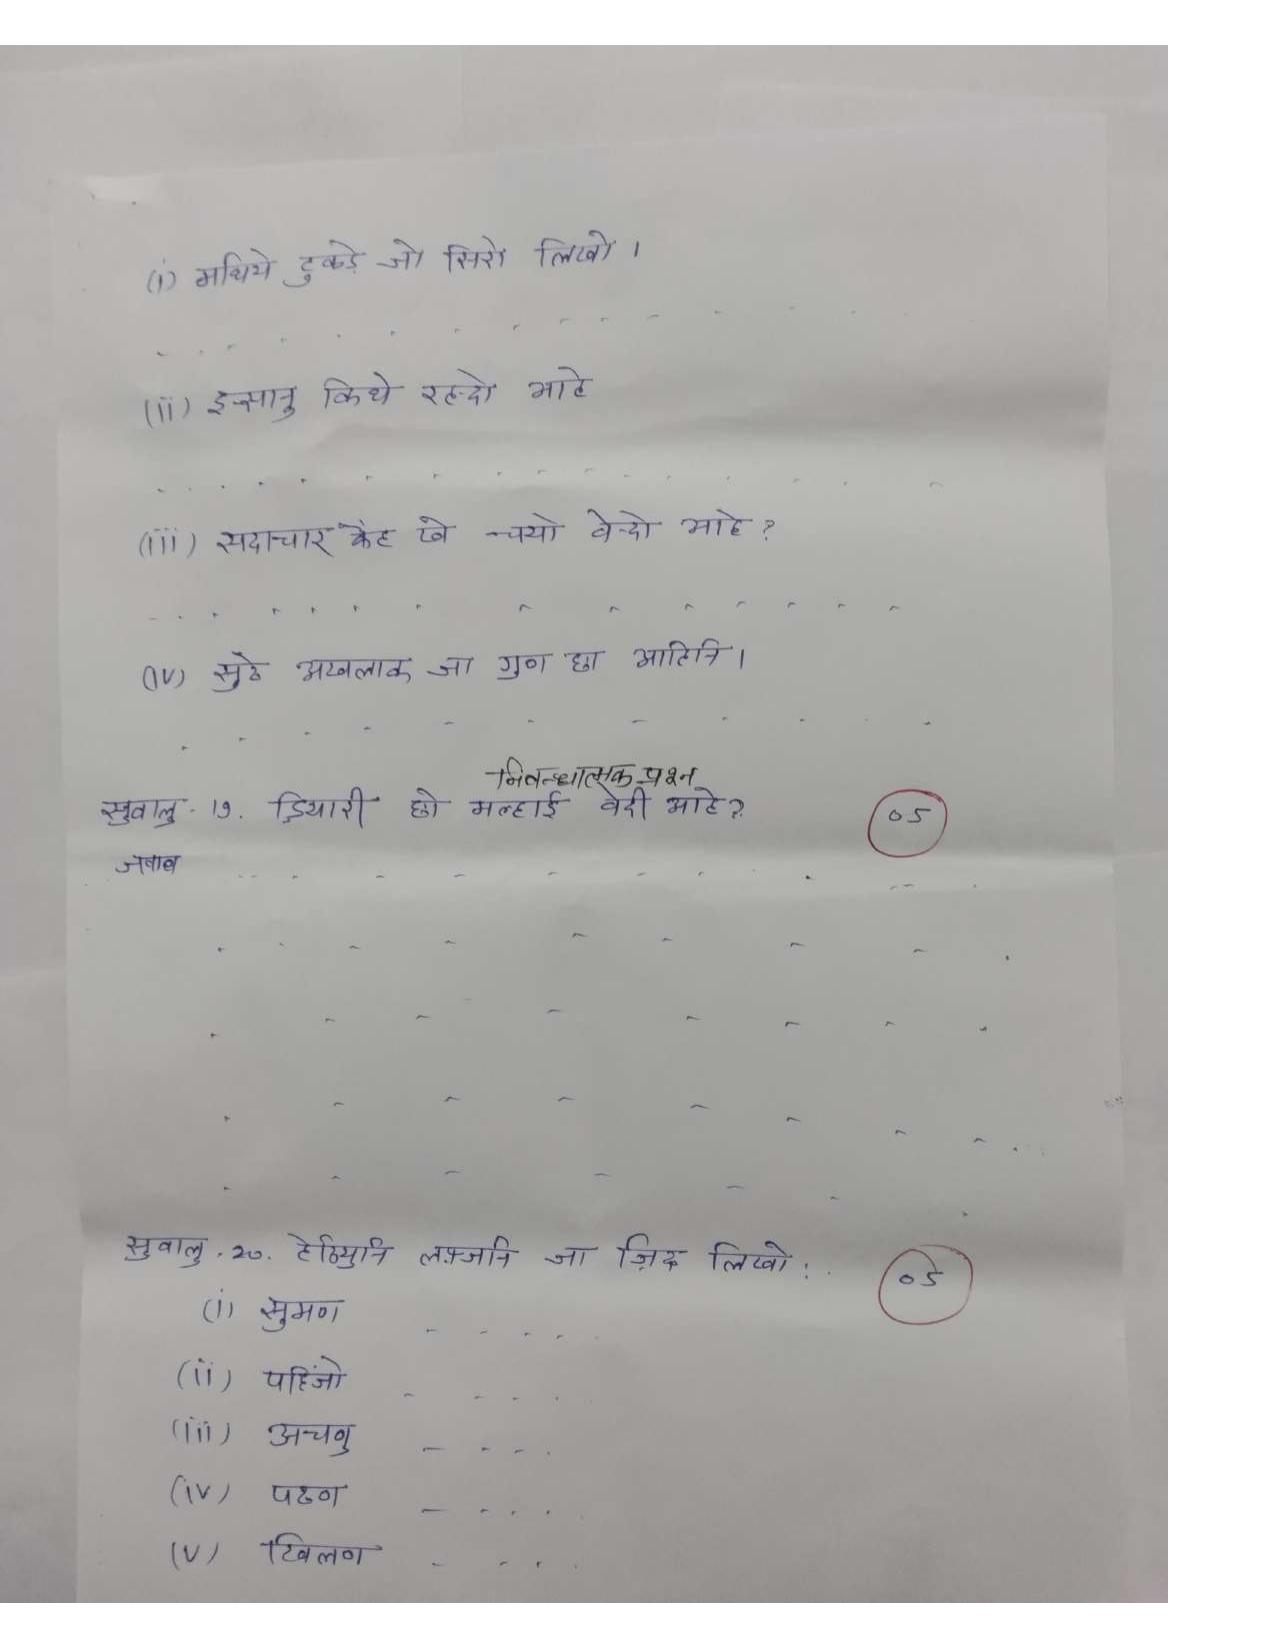 (i) मथिये टुकड़े जो सिरो लिखो ।
(ii) इन्सानु किथे रहन्दो आहे
(iii) सदाचार केंह खे चयो वेन्दो आहे ?
(iv) सुठे अखलाक जा गुण छा आहिनि ।
निबन्धात्मक प्रश्न
सुवालु. 19. डियारी छो मल्हाई वेंदी आहे ?
05
जवाब
सुवालु. 20. हेठियुनि लफ़्ज़नि जा ज़िद लिखो :
05
(i) सुमण
(ii) पहिंजो
(iii) अचणु
(iv) पढण
(v) खिलण